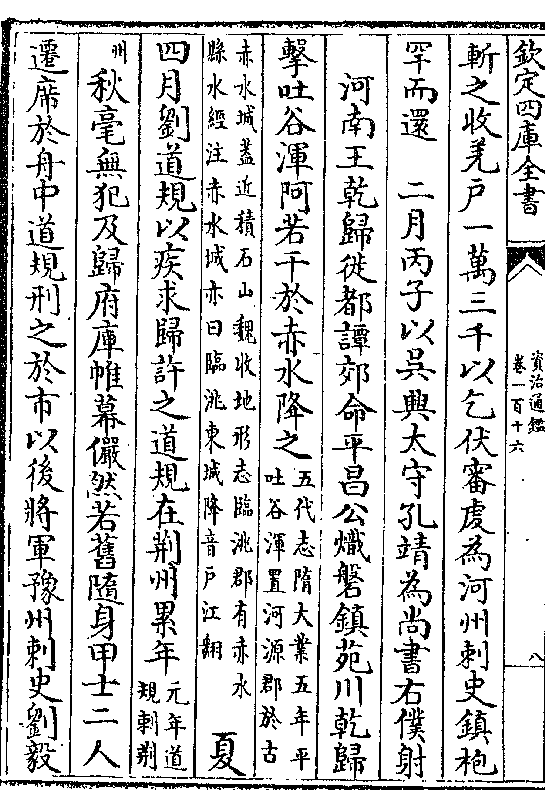 欽定四庫全書
資治通鑑
卷一百十六
八
斬之收羌戶一萬三千以乞伏審虔為河州刺史鎮枹
罕而還　二月丙子以吳興太守孔靖為尚書右僕射
河南王乾歸徙都譚郊命平昌公熾磐鎮苑川乾歸
擊吐谷渾阿若干於赤水降之五代志隋大業五年平吐谷渾置河源郡於古
赤水城蓋近積石山魏收地形志臨洮郡有赤水縣水經注赤水城亦曰臨洮東城降音戶江翻　夏
四月劉道規以疾求歸許之道規在荆州累年元年道規刺荆
州秋毫無犯及歸府庫帷幕儼然若舊隨身甲士二人
遷席於舟中道規刑之於市以後將軍豫州刺史劉毅